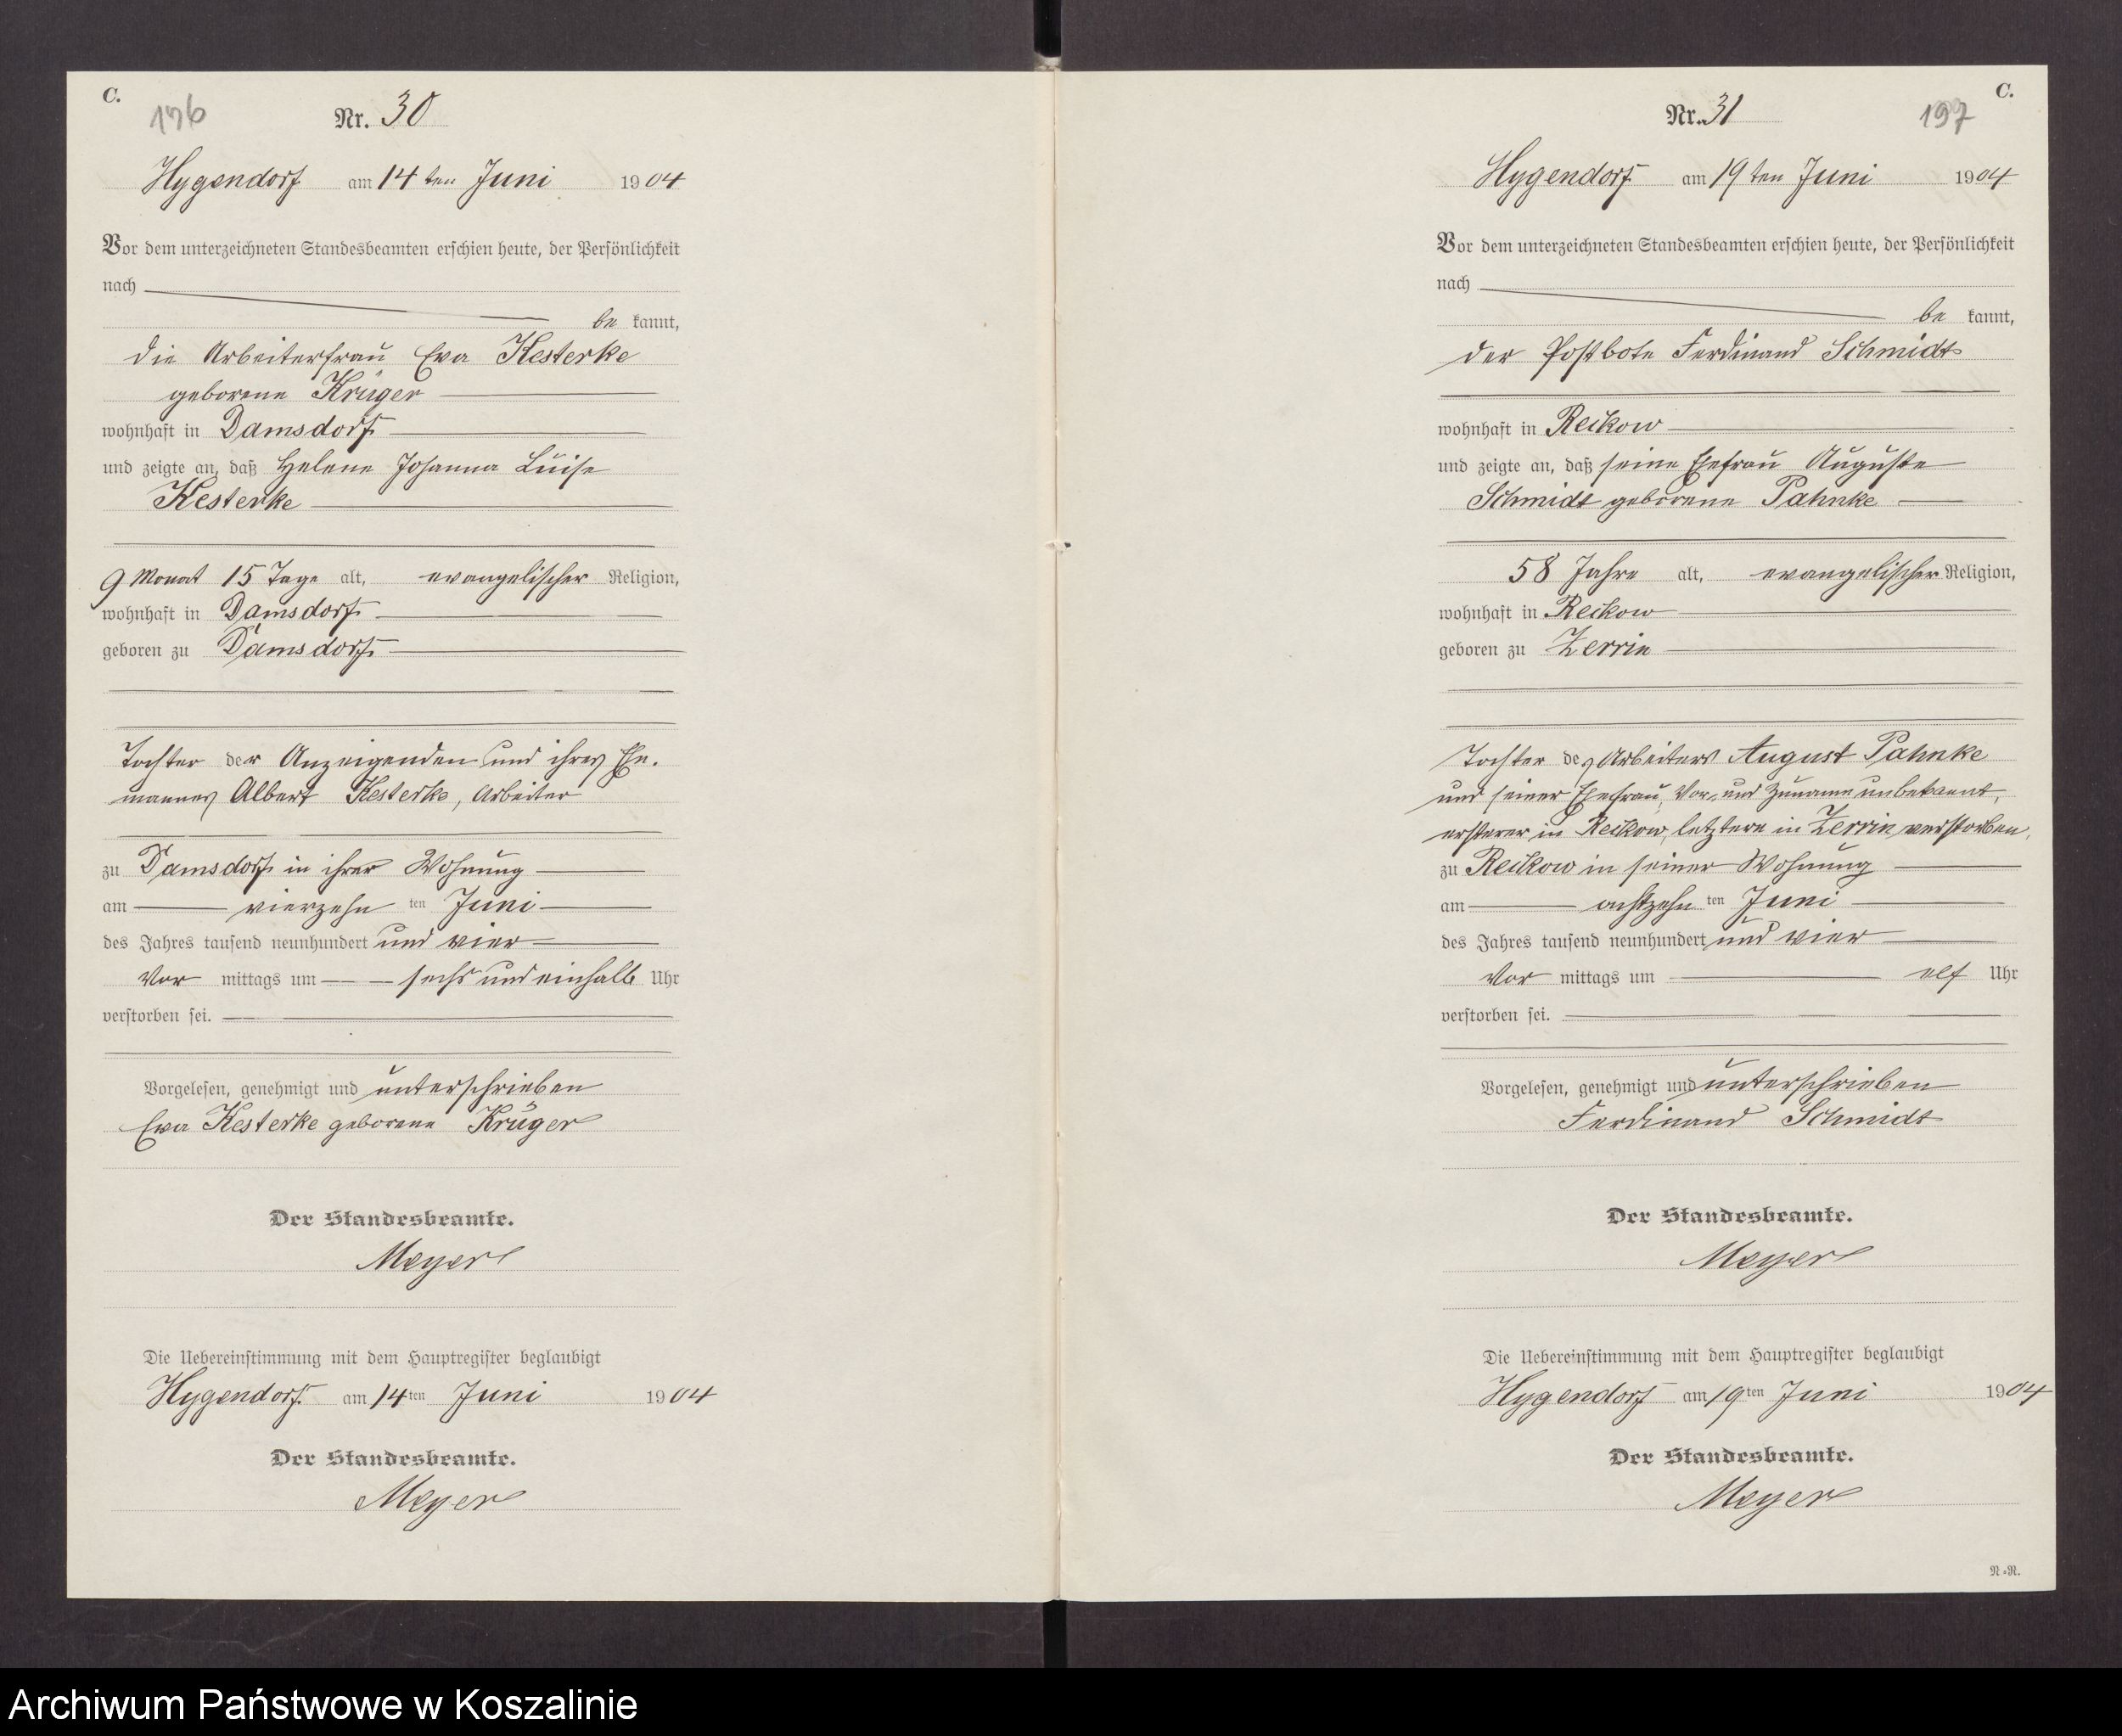 C.
196
Nr. 30
Hygendorf am 14ten Juni 1904
Vor dem unterzeichneten Standesbeamten erschien heute, der Persönlichkeit
nach
be kannt,
die Arbeiterfrau Eva Kesterke
geborene Krüger
wohnhaft in Damsdorf
und zeigte an, daß Helene Johanna Luise
Kesterke
9 Monat 15 Tage alt, evangelischer Religion,
wohnhaft in Damsdorf
geboren zu Damsdorf
Tochter der Anzeigenden und ihres Ehe-
mannes Albert Kesterke, Arbeiter
zu Damsdorf in ihrer Wohnung
am vierzehn ten Juni
des Jahres tausend neunhundert und vier
Vor mittags um sechs und einhalb Uhr
verstorben sei.
Vorgelesen, genehmigt und unterschrieben
Eva Kesterke geborene Krüger
Der Standesbeamte.
Meyer
Die Uebereinstimmung mit dem Hauptregister beglaubigt
Hygendorf am 14ten Juni 1904
Der Standesbeamte.
Meyer
C.
197
Nr. 31
Hygendorf am 19ten Juni 1904
Vor dem unterzeichneten Standesbeamten erschien heute, der Persönlichkeit
nach
be kannt,
der Postbote Ferdinand Schmidt
wohnhaft in Reckow
und zeigte an, daß seine Ehefrau Auguste
Schmidt geborene Pahnke
58 Jahre alt, evangelischer Religion,
wohnhaft in Reckow
geboren zu Zerrin
Tochter des Arbeiters August Pahnke
und seiner Ehefrau, Vor- und Zuname unbekannt,
ersterer in Reckow, letztere in Zerrin verstorben,
zu Reckow in seiner Wohnung
am achtzehn ten Juni
des Jahres tausend neunhundert und vier
Vor mittags um elf Uhr
verstorben sei.
Vorgelesen, genehmigt und unterschrieben
Ferdinand Schmidt
Der Standesbeamte.
Meyer
Die Uebereinstimmung mit dem Hauptregister beglaubigt
Hygendorf am 19ten Juni 1904
Der Standesbeamte.
Meyer
N.=N.
Archiwum Państwowe w Koszalinie